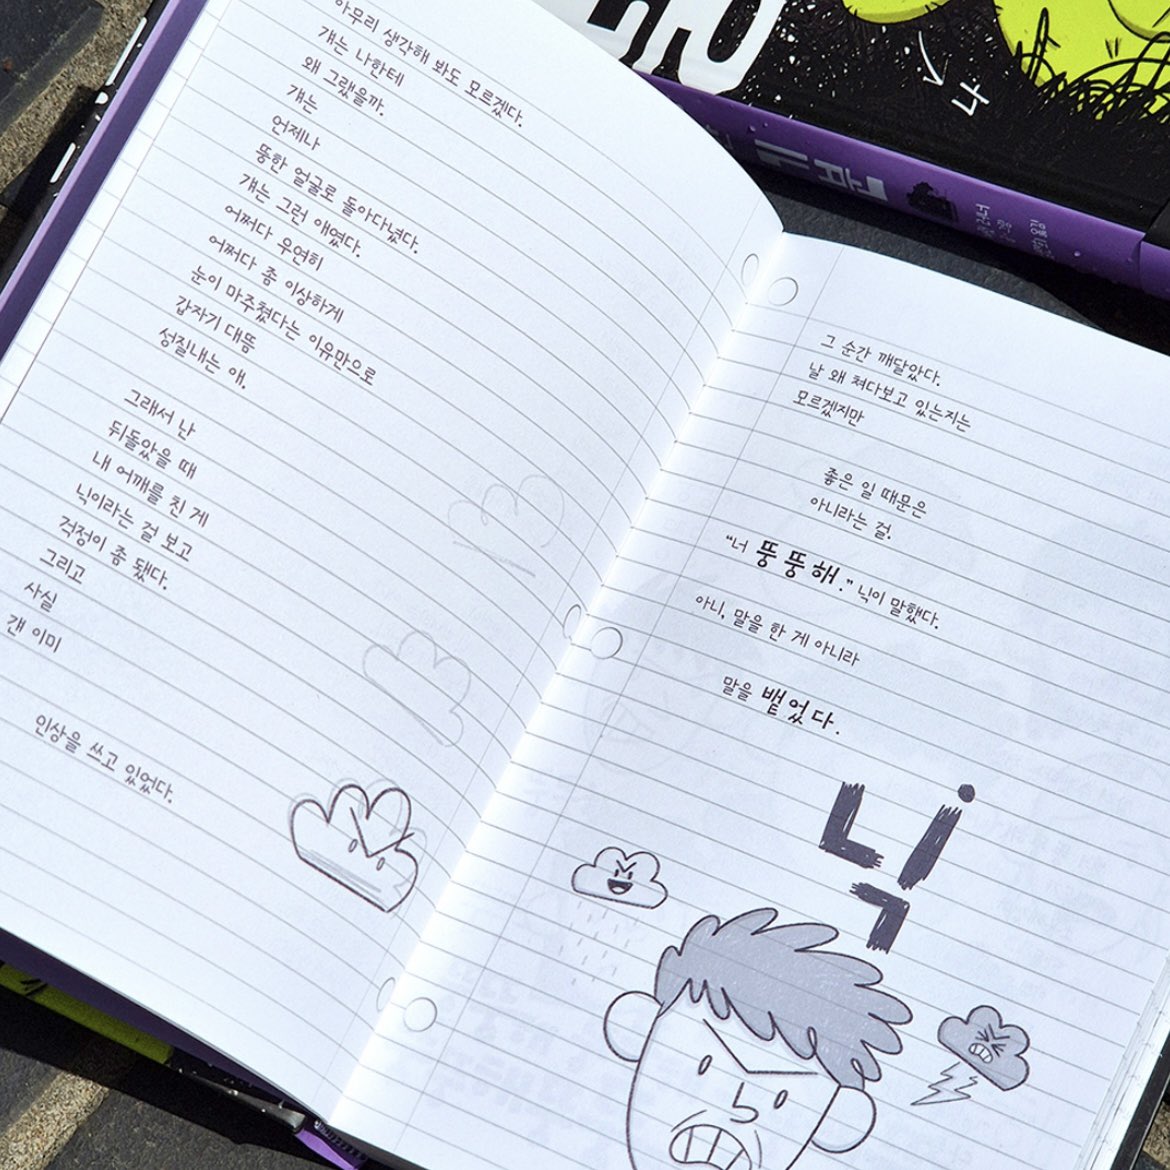 아무리 생각해 봐도 모르겠다.
걔는 나한테
왜 그랬을까.
걔는
언제나
뚱한 얼굴로 돌아다녔다.
걔는 그런 애였다.
어쩌다 우연히
어쩌다 좀 이상하게
눈이 마주쳤다는 이유만으로
갑자기 대뜸
성질내는 애.
그래서 난
뒤돌았을 때
내 어깨를 친 게
닉이라는 걸 보고
걱정이 좀 됐다.
그리고
사실
걘 이미
인상을 쓰고 있었다.
그 순간 깨달았다.
날 왜 쳐다보고 있는지는
모르겠지만
좋은 일 때문은
아니라는 걸.
“너 뚱뚱해.” 닉이 말했다.
아니, 말을 한 게 아니라
말을 뱉었다.
닉
나